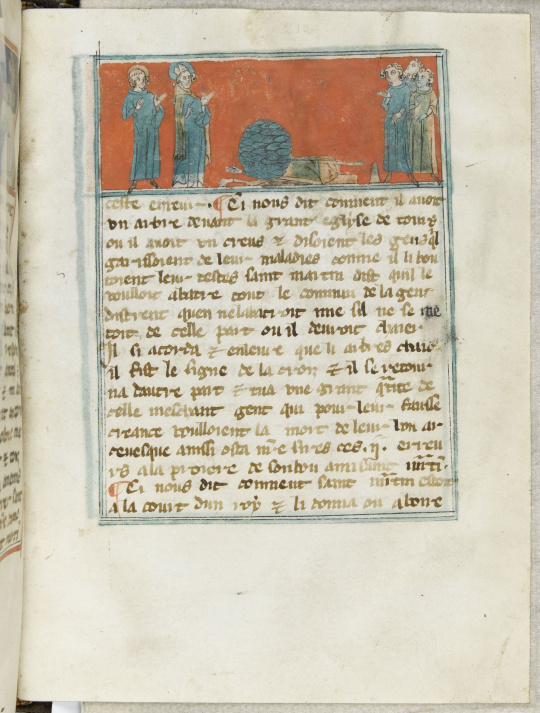 ceste erreur. Ci nous dit comment il avoit
vn arbre deuant la grant eglyse de tours
ou il auoit vn creus ⁊ disoient les gens qͥl
garissoient de leur maladies comme il li bou
toient leur testes saint martin dist quil le
vouloit abatre tout le commun de la gent
distrent quen nelabatroit mie sil ne se me
toit de celle part ou il deuroit cheier
Il si acorda ⁊ enleure que li arbres cheie
il fist le signe de la croix ⁊ il se retour
na dautre part ⁊ tua vne grant qͣtite de
celle meschant gent qui pour leur fausse
creance vouloient la mort de leur bon ar
ceuesque ainssi osta nr̄e sires ces .ij. erreu
rs a la priere de son bon ami saint mr̄ti.
Ci nous dit comment saint mr̄tin estoit
a la court dun roy ⁊ li donna on a boire